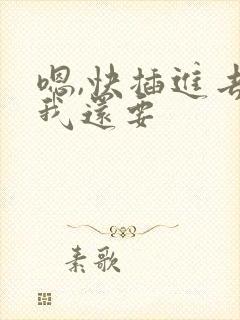 嗯,快插进去
我还要
素歌